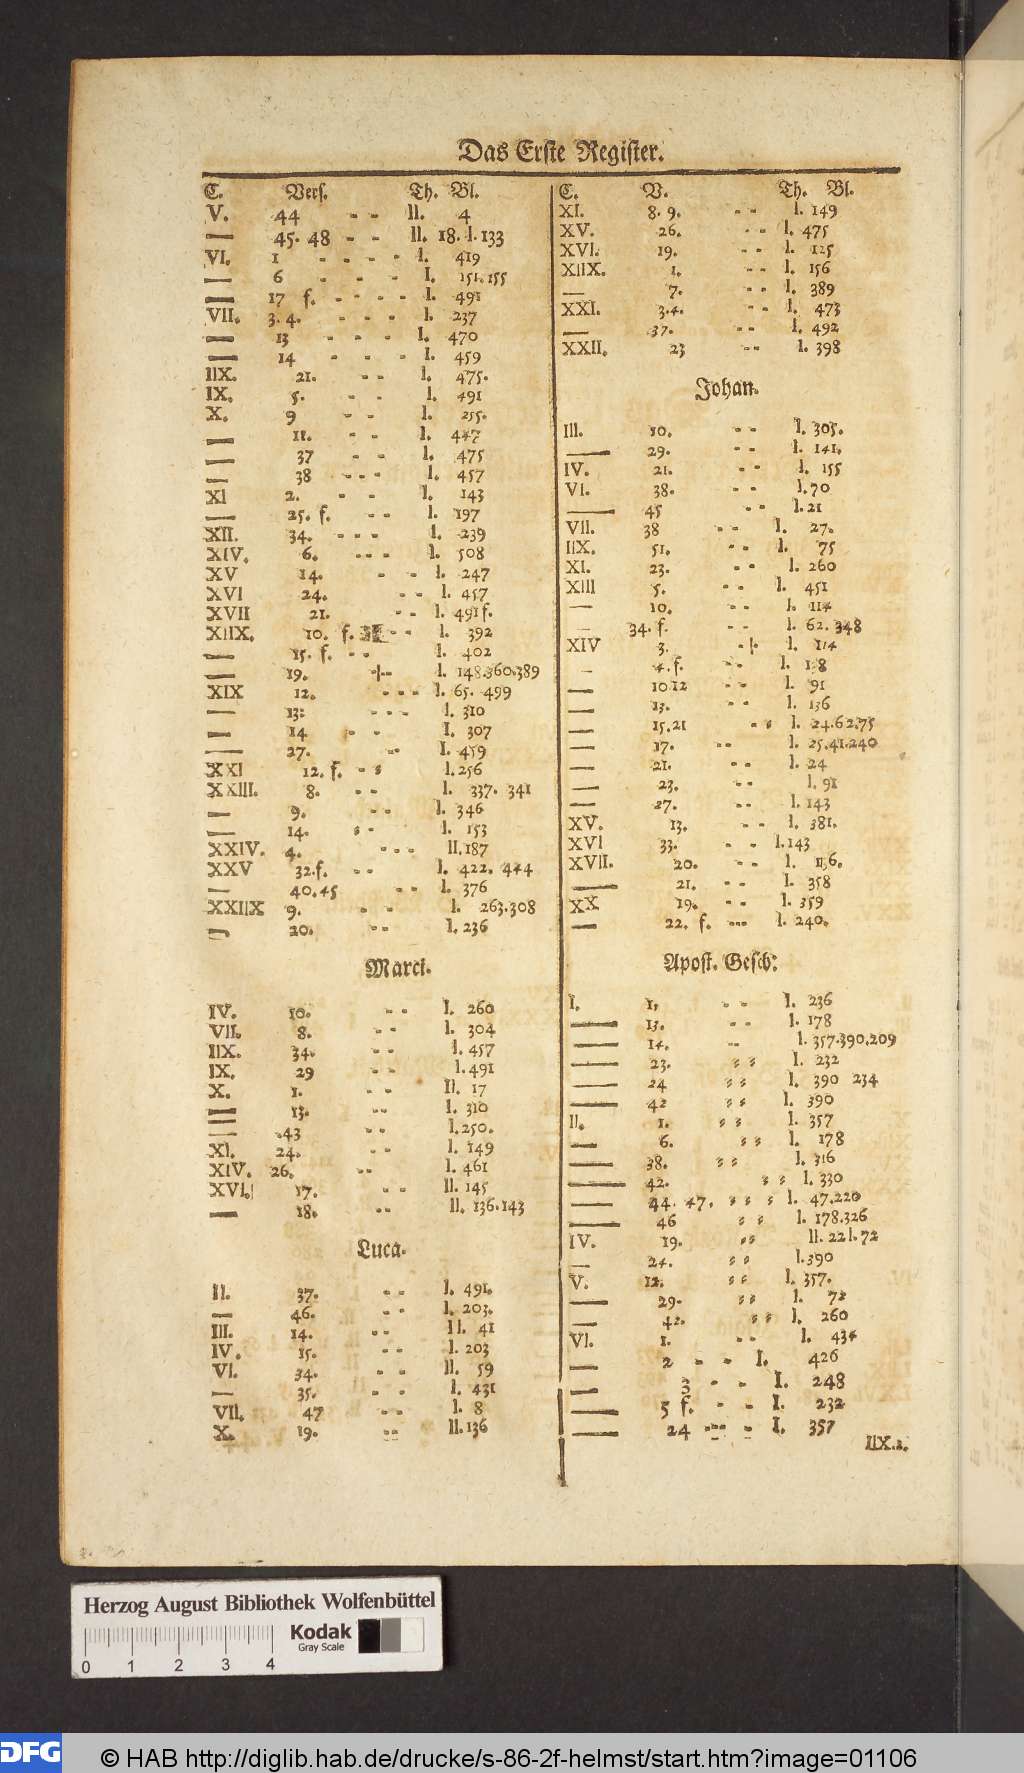 Das Erste Register.
C. Vers. Th. Bl.
V. 44 - - II. 4
— 45. 48 - - II. 18. I. 133
VI. 1 - - - - I. 419
— 6 - - - I. 151. 155
— 17 f. - - - - I. 491
VII. 3. 4. - - - - I. 237
— 13 - - - I. 470
— 14 - - - I. 459
IIX. 21. - - I. 475.
IX. 5. - - I. 491
X. 9 - - I. 255.
— 11. - - I. 447
— 37 - - I. 475
— 38 - - - I. 457
XI 2. - - I. 143
— 25. f. - - I. 197
XII. 34. - - - I. 239
XIV. 6. - - - I. 508
XV 14. - - I. 247
XVI 24. - - I. 457
XVII 21. - - I. 491 f.
XIIX. 10. f. - - I. 392
— 15. f. - - I. 402
— 19. - - I. 148.360.389
XIX 12. - - - I. 65. 499
— 13: - - - I. 310
— 14 - - I. 307
— 27. - - I. 459
XXI 12. f. - - I. 256
XXIII. 8. - - I. 337. 341
— 9. - - I. 346
— 14. - - I. 153
XXIV. 4. - - - II. 187
XXV 32.f. - - I. 422. 444
— 40.45 - - I. 376
XXIIX 9. - - I. 263.308
— 20. - - I. 236
Marci.
IV. 10. - - I. 260
VII. 8. - - I. 304
IIX. 34. - - I. 457
IX. 29 - - I. 491
X. 1. - - II. 17
— 13. - - I. 310
— .43 - - I. 250.
XI. 24. - - I. 149
XIV. 26. - - I. 461
XVI. 17. - - II. 145
— 18. - - II. 136.143
Luca.
II. 37. - - I. 491.
— 46. - - I. 203.
III. 14. - - II. 41
IV. 15. - - I. 203
VI. 34. - - II. 59
— 35. - - I. 431
VII. 47 - - I. 8
X. 19. - - II. 136
C. V. Th. Bl.
XI. 8. 9. - - I. 149
XV. 26. - - I. 475
XVI. 19. - - I. 125
XIIX. 1. - - I. 156
— 7. - - I. 389
XXI. 3.4. - - I. 473
— 37. - - I. 492
XXII. 23 - - I. 398
Johan.
III. 10. - - I. 305.
— 29. - - I. 141.
IV. 21. - - I. 155
VI. 38. - - I. 70
— 45 - - I. 21
VII. 38 - - I. 27.
IIX. 51. - - I. 75
XI. 23. - - I. 260
XIII 5. - - I. 451
— 10. - - I. 114
— 34. f. - - I. 62. 348
XIV 3. - - I. 114
— 4. f. - - I.
— 10 12 - - I. 91
— 13. - - I. 136
— 15.21 - - I. 24.62.75
— 17. - - I. 25.41.240
— 21. - - I. 24
— 23. - - I. 91
— 27. - - I. 143
XV. 13. - - I. 381.
XVI 33. - - I. 143
XVII. 20. - - I. 136.
— 21. - - I. 358
XX 19. - - I. 359
— 22. f. - - I. 240.
Apost. Gesch:
I. 1. - - I. 236
— 13. - - I. 178
— 14. - - I. 357.390.209
— 23. - - I. 232
— 24 - - I. 390 234
— 42 - - I. 390
II. 1. - - I. 357
— 6. - - I. 178
— 38. - - I. 316
— 42. - - I. 330
— 44. 47. - - - I. 47.220
— 46 - - I. 178.326
IV. 19. - - II. 22 I. 72
— 24. - - I. 390
V. 12. - - I. 357.
— 29. - - I. 72
— 42. - - I. 260
VI. 1. - - I. 434
— 2 - - I. 426
— 3 - - I. 248
— 5 f. - - I. 232
— 24 - - I. 357
IIX.2.
Herzog August Bibliothek Wolfenbüttel
Kodak
Gray Scale
0 1 2 3 4
DFG © HAB http://diglib.hab.de/drucke/s-86-2f-helmst/start.htm?image=01106